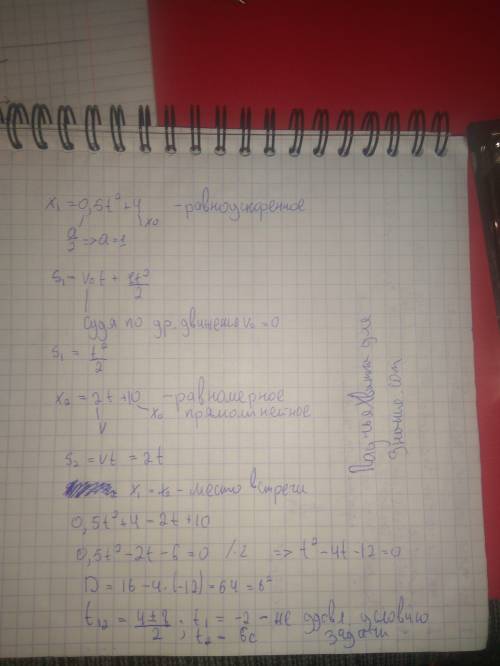 x₁ = 0,5t² + 4 - равноускоренное
x₀
a/2 => a = 1
S₁ = v₀t + at²/2
судя по ур. движения v₀ = 0
S₁ = t²/2
x₂ = 2t + 10 - равномерное
v x₀ прямолинейное
S₂ = vt = 2t
x₁ = x₂ - место встречи
0,5t² + 4 = 2t + 10
0,5t² - 2t - 6 = 0 /·2 => t² - 4t - 12 = 0
D = 16 - 4·(-12) = 64 = 8²
t₁₂ = (4 ± 8)/2 ; t₁ = -2 - не удовл. условию
t₂ = 6c задачи
для
знание. com